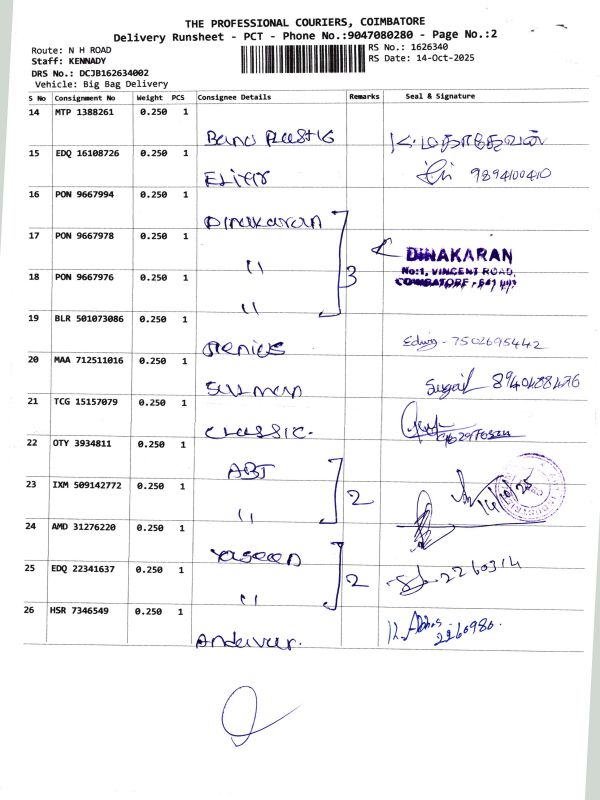 THE PROFESSIONAL COURIERS, COIMBATORE
Delivery Runsheet - PCT - Phone No.:9047080280 - Page No.:2
Route: N H ROAD
Staff: KENNADY
DRS No.: DCJB162634002
Vehicle: Big Bag Delivery
RS No.: 1626340
RS Date: 14-Oct-2025
S No Consignment No Weight PCS Consignee Details Remarks Seal & Signature
14 MTP 1388261 0.250 1
15 EDQ 16108726 0.250 1
9894100410
16 PON 9667994 0.250 1
Dinakaran
17 PON 9667978 0.250 1
" 3
DINAKARAN
No:1, VINCENT ROAD,
COIMBATORE
18 PON 9667976 0.250 1
"
19 BLR 501073086 0.250 1
7502695442
20 MAA 712511016 0.250 1
21 TCG 15157079 0.250 1
Classic.
22 OTY 3934811 0.250 1
ABT
23 IXM 509142772 0.250 1
" 2
14/10/25
24 AMD 31276220 0.250 1
Yaseen
25 EDQ 22341637 0.250 1
" 2
2260314
26 HSR 7346549 0.250 1
Andavar.
2260980.